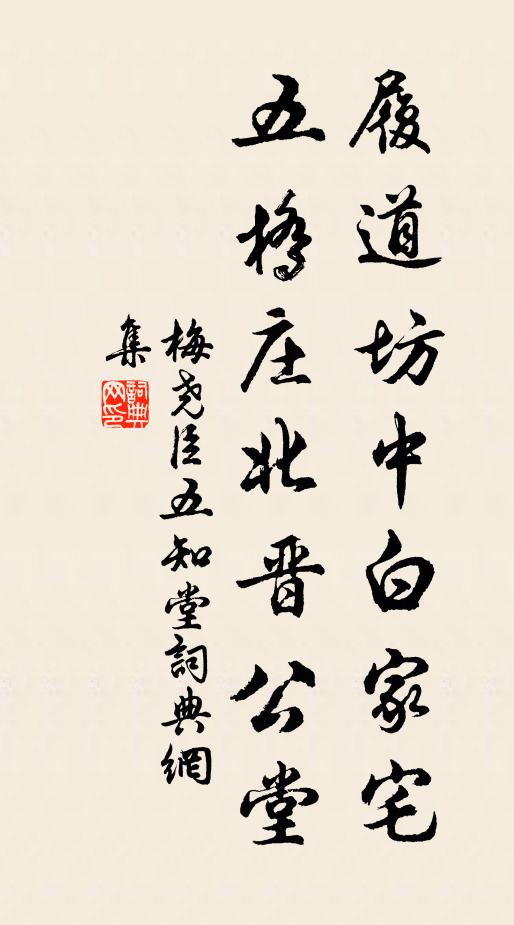 履道坊中白家宅
五橋庄北晋公堂
梅尧臣五知堂詞典網
集
詞典網印